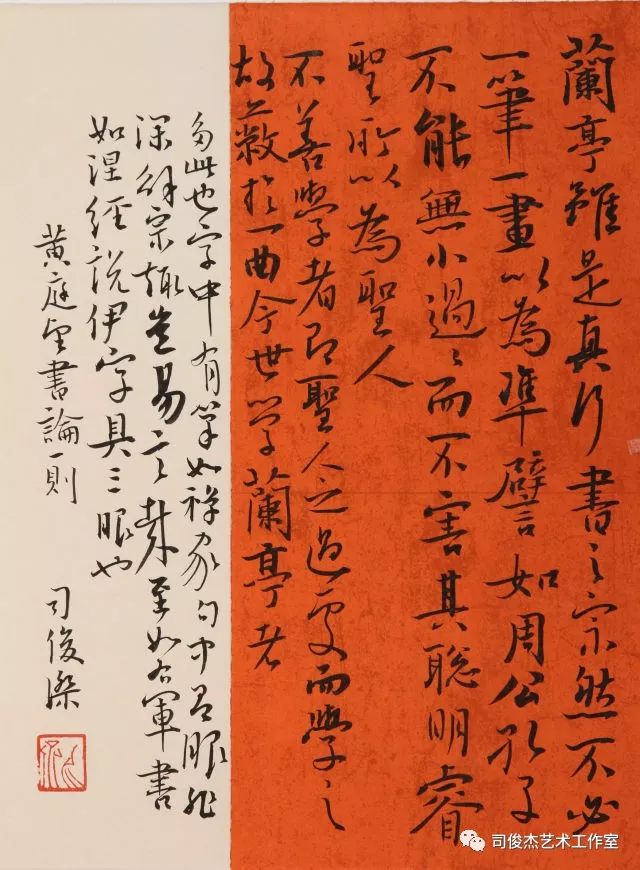 蘭亭雖是真行書之宗然不必
一筆一畫以為準譬如周公孔子
不能無小過過而不害其聰明睿
聖所以為聖人
不善學者即聖人之過處而學之
故蔽於一曲今世學蘭亭者
多此也字中有筆如禪家句中有眼非
深解宗趣豈易言哉至如右軍書
如涅經說伊字具三眼也
黃庭堅書論一則
司俊傑
司俊杰艺术工作室